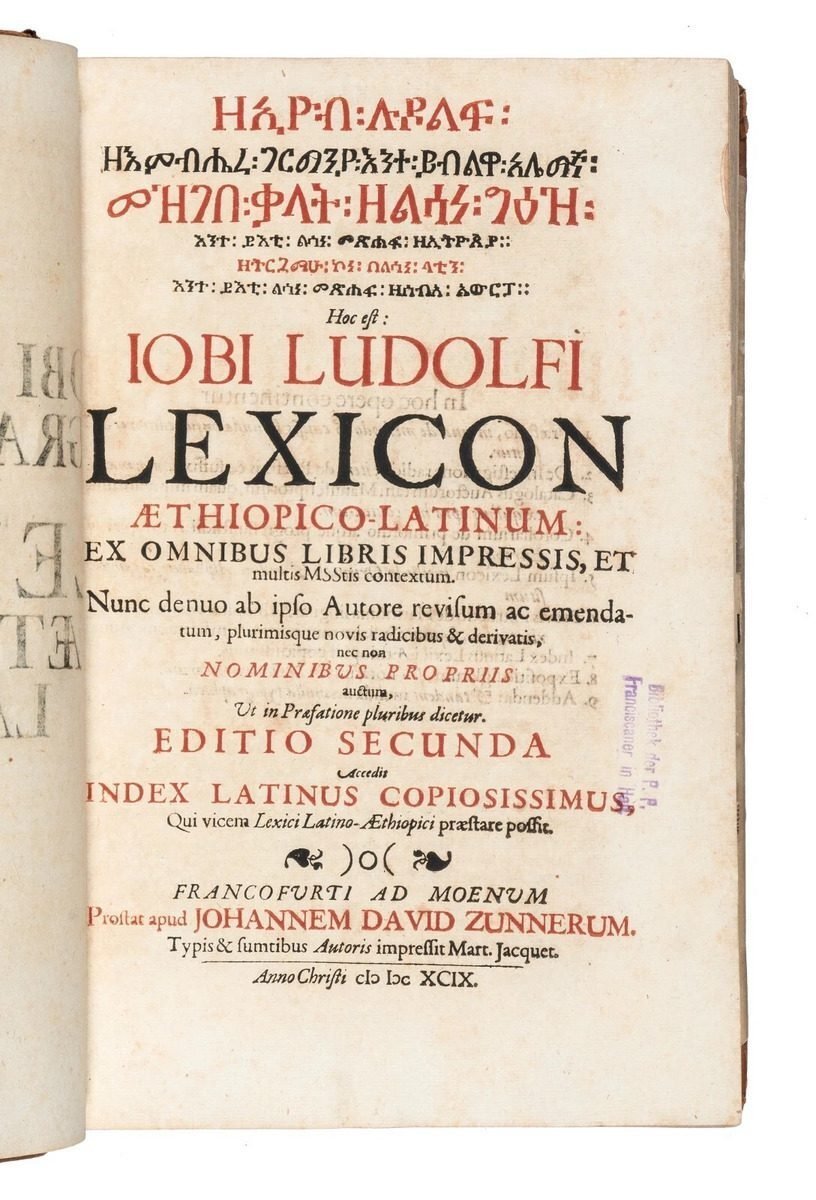 ዘኢዮ፡ብ፡ሉዶልፍ፡
ዘእምብሔረ፡ገርማንያ፡እንተ፡ይብልዋ፡አሌማኛ፡
መዝገበ፡ቃላት፡ዘልሳነ፡ግዕዝ፡
እንተ፡ ይእቲ፡ ልሳነ፡ መጽሐፍ፡ ዘኢትዮጵያ፡፡
ዘትርጓማሁ፡ ኮነ፡ በልሳነ፡ ላቲን፡
እንተ፡ ይእቲ፡ ልሳነ፡ መጽሐፍ፡ ዘሰብአ፡ ኤውሮጳ፡፡
Hoc eſt:
IOBI LUDOLFI
LEXICON
ÆTHIOPICO-LATINUM:
EX OMNIBUS LIBRIS IMPRESSIS, ET
multis MSStis contextum.
Nunc denuo ab ipſo Autore reviſum ac emenda-
tum, plurimisque novis radicibus & derivatis,
nec non
NOMINIBUS PROPRIIS
auctum,
Ut in Præfatione pluribus dicetur.
EDITIO SECUNDA
Accedit
INDEX LATINUS COPIOSISSIMUS,
Qui vicem Lexici Latino-Æthiopici præstare poſſit.
)o(
FRANCOFURTI AD MOENUM
Proſtat apud JOHANNEM DAVID ZUNNERUM.
Typis & ſumtibus Autoris impreſſit Mart. Jacquet.
Anno Chriſti cIɔ Iɔc XCIX.
Bibliothek der P. P.
Franciscaner in